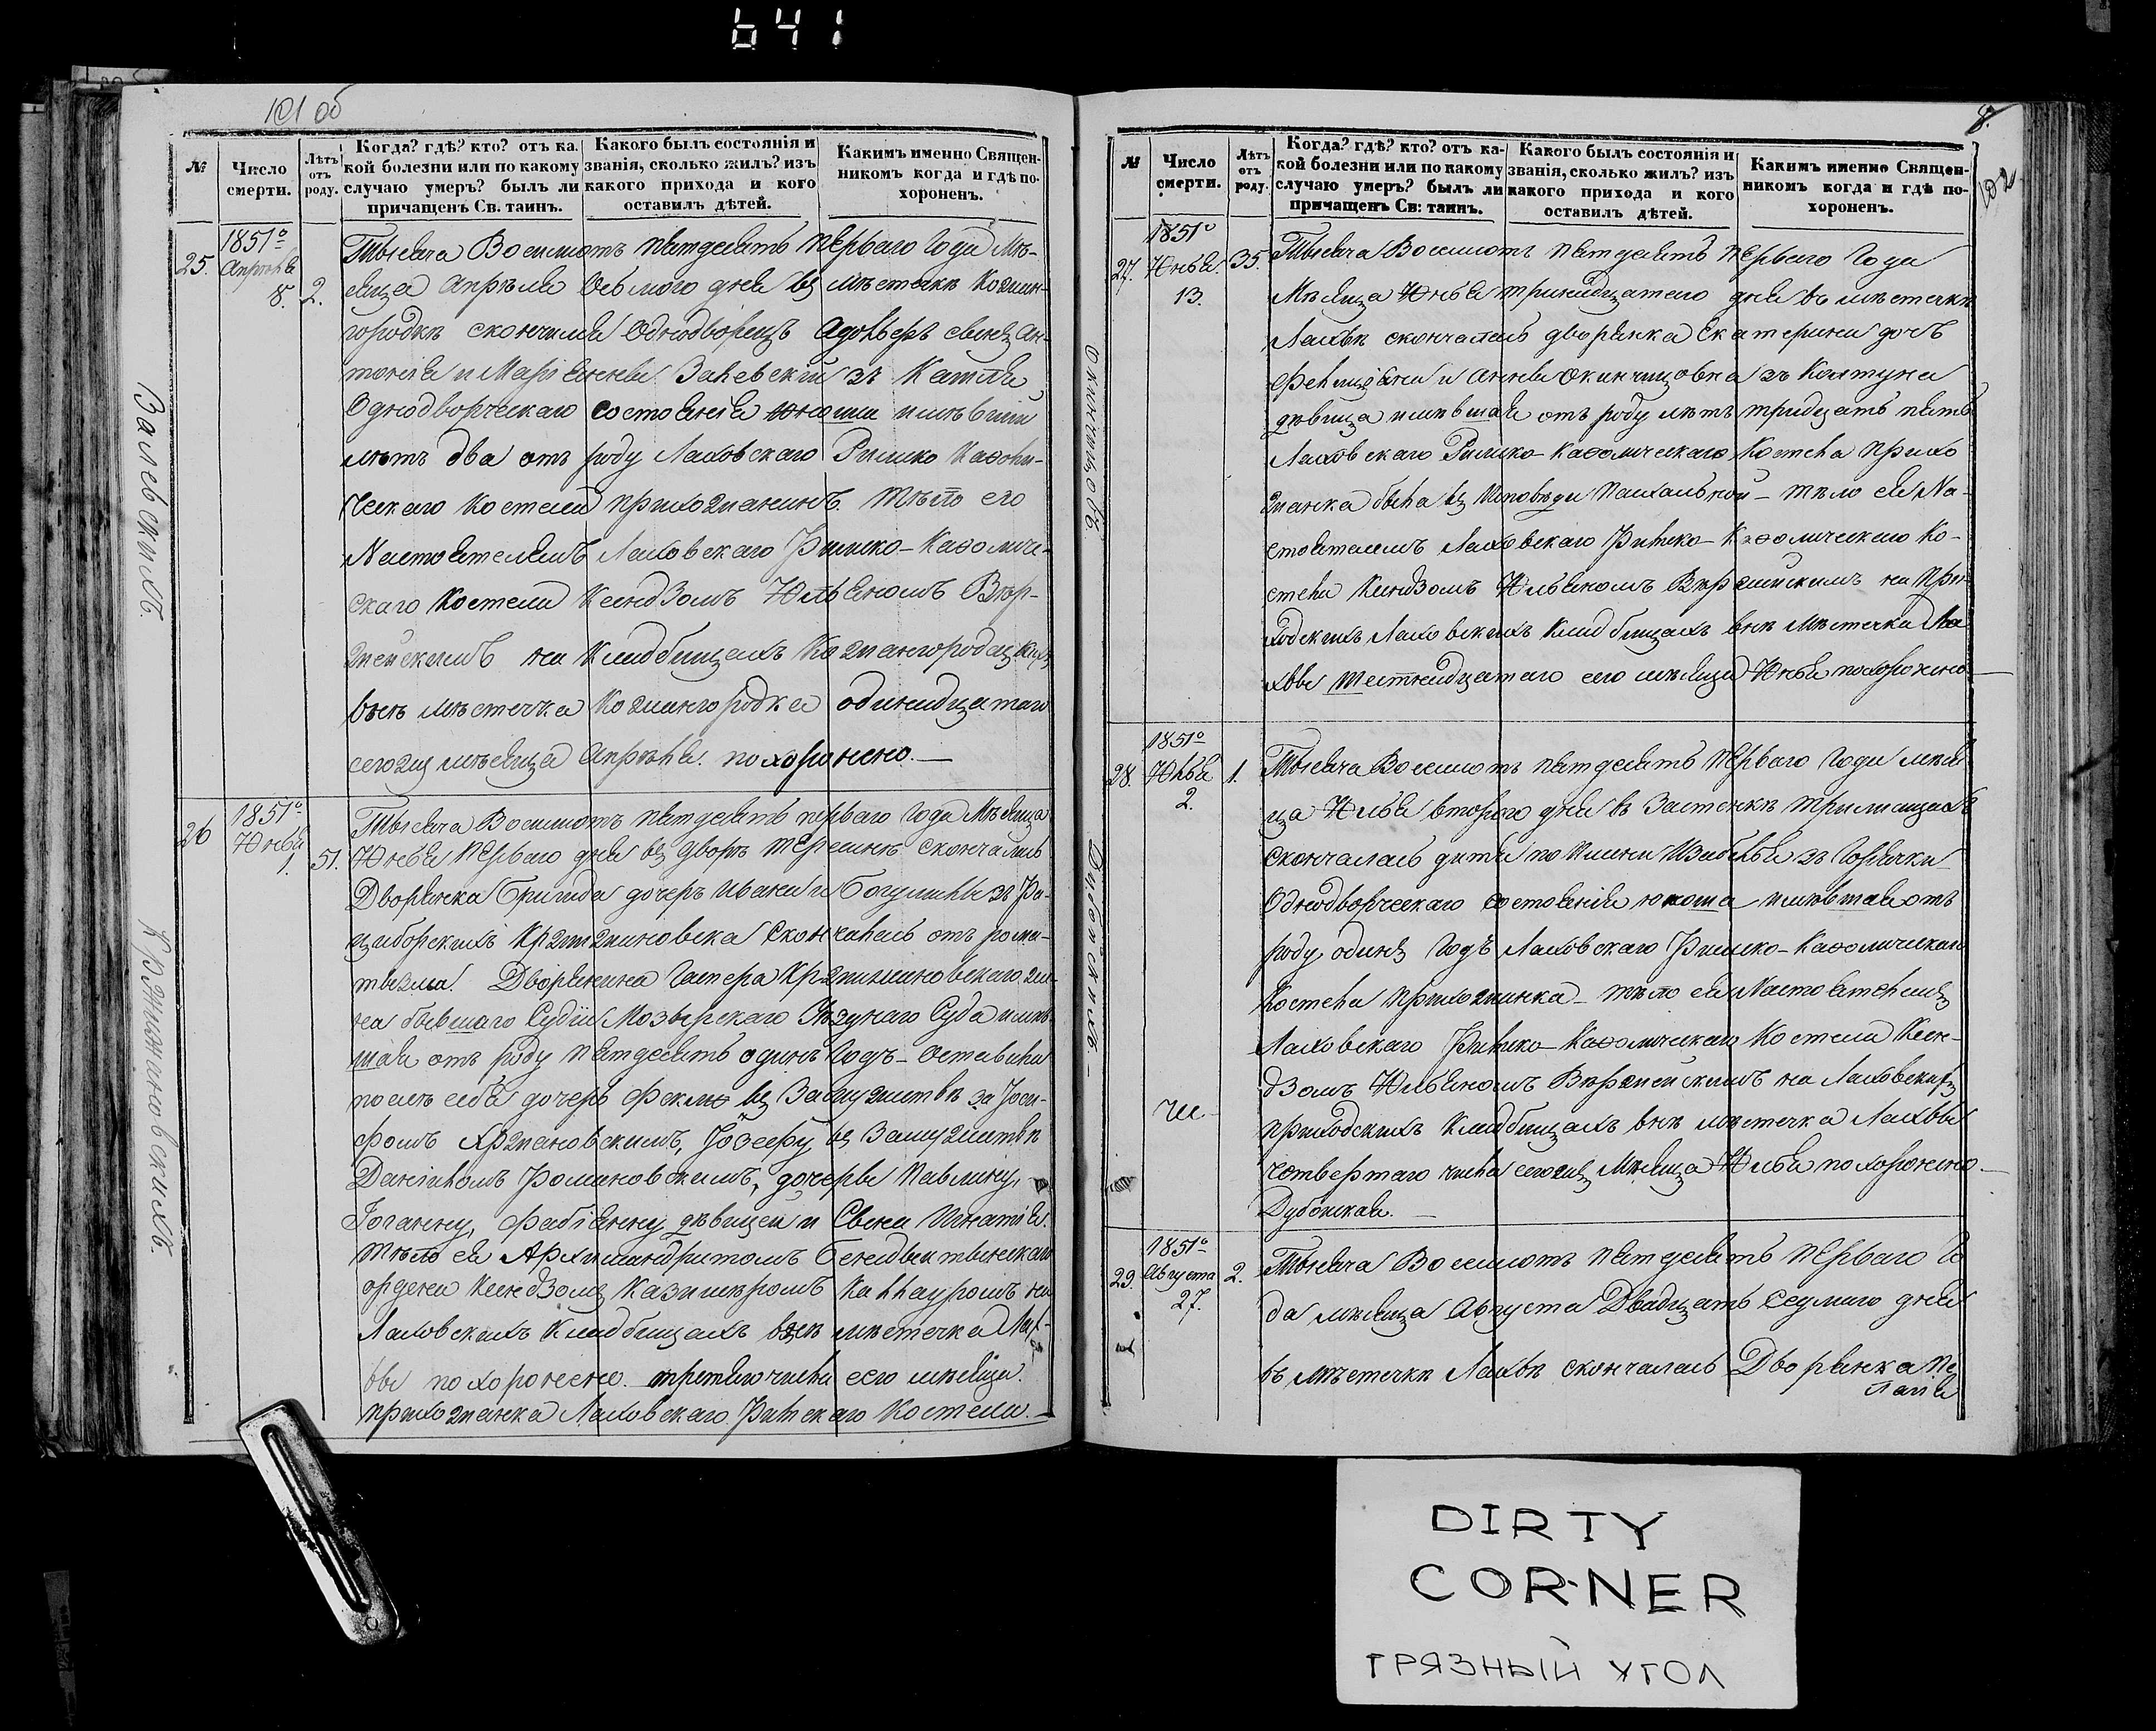 641
101 об
№
Число смерти.
Лѣтъ отъ роду.
Когда? гдѣ? кто? отъ ка-
кой болезни или по какому
случаю умеръ? былъ ли
причащенъ Св. таинъ.
Какого былъ состоянія и
званія, сколько жилъ? изъ
какого прихода и кого
оставилъ дѣтей.
Какимъ именно Священ-
никомъ когда и гдѣ по-
хороненъ.
25.
1851º
Апрѣля
8.
2.
Тысяча Восемсотъ пятдесятъ перваго Года Мѣ-
сяца Апрѣля восмого дня въ мѣстечкѣ Кожан-
городкѣ скончался Однодворецъ сынъ Ан-
тонія и Маріанны
Однодворческаго состоянія юноша имѣвшій
лѣтъ два отъ роду Лаховскаго Римско Каѳоли-
ческаго Костела прихожанинъ. Тѣло его
Настоятелемъ Лаховскаго Римско-Каѳоличе-
скаго Костела Ксендзомъ Юльяномъ Вер-
жейскимъ на Кладбищахъ Кожангородецкихъ
внѣ мѣстечка Кожангородка одинадцатаго
сегожъ мѣсяца Апрѣля похоронено.—
26
1851º
Юнья
1.
51.
Тысяча Восемсотъ пятдесятъ перваго Года Мѣсяца
Юнья перваго дня въ Дворѣ скончалась
Дворянка Бригида дочерь Ивана и Богумилы зъ Ра-
циборскихъ Кржижановска Скончалась отъ рома-
тызма. Дворянина Гаспера Кржижановскаго же-
на бывшаго Судіи Мозырскаго Уѣзднаго Суда имѣв-
шая отъ роду пятдесятъ одинъ Годъ- Оставила
послѣ себя дочерь Феклю въ Замужствѣ за Іоси-
фомъ Іозефу въ Замужствѣ
Даніиломъ Романовскимъ, дочеры Павлину,
Іоганну, Фабіанну дѣвицей и Сына Игнатія.
Тѣло ея Архимандритомъ Бенедыктынскаго
ордена Ксендзомъ Казимѣромъ на
Лаховскихъ Кладбищахъ внѣ мѣстечка Лах-
вы похоронено. третяго числа сего мѣсяца.
прихожанка Лаховскаго Римскаго Костела.—
Кржижановскихъ.
8.
102
№
Число смерти.
Лѣтъ отъ роду.
Когда? гдѣ? кто? отъ ка-
кой болезни или по какому
случаю умеръ? былъ ли
причащенъ Св: таинъ.
Какого былъ состоянія и
званія, сколько жилъ? изъ
какого прихода и кого
оставилъ дѣтей.
Какимъ именно Священ-
никомъ когда и гдѣ по-
хороненъ.
27.
1851º
Юнья
13.
35.
Тысяча Восемсотъ пятдесятъ перваго Года
Мѣсяца Юнья тринадцатаго дня въ мѣстечкѣ
Лахвѣ скончалась дворянка Екатерина дочь
Фелиціана и Анны зъ Колтуна
дѣвица имѣвшая отъ роду лѣтъ тридцать пять
Лаховскаго Римско-Каѳолическаго Костела прихо
жанка была въ Исповѣди Пасхальной – тѣло ея На-
стоятелемъ Лаховскаго Римско-Каѳолическаго Ко-
стела Ксендзомъ Юльяномъ Вержейскимъ на При-
ходскихъ Лаховскихъ Кладбищахъ внѣ мѣстечка Ла
хвы шестнадцатаго сего мѣсяца Юнья похоронено—
28.
1851º
Юлья
2.
1.
Тысяча Восемсотъ пятдесятъ перваго Года мѣся
ца Юлья второго дня въ Застенкѣ
скончалась дитя по имени Изабелья зъ
Однодворческаго состоянія юноша имѣвшая отъ
роду одинъ Годъ Лаховскаго Римско-Каѳолическаго
Костела прихожанка – тѣло ея Настоятелемъ
Лаховскаго Римско-Каѳолическаго Костела Ксен-
дзомъ Юльяномъ Вержейскимъ на Лаховскихъ
приходскихъ Кладбищахъ внѣ мѣстечка Лахвы
четвертаго числа сегожъ Мѣсяца Юлья похоронено.—
Дубойская.—
Дубойскихъ.—
29.
1851º
Августа
27.
2.
Тысяча Восемсотъ пятдесятъ перваго Го
да мѣсяца Августа Двадцать Седмаго дня
въ мѣстечкѣ Лахвѣ скончалась Дворянка Пе
лагія
DIRTY
CORNER
ГРЯЗНЫЙ УГОЛ